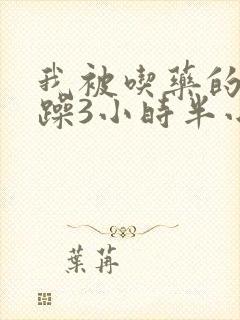 我被喫藥的
躁3小時半小
葉苒